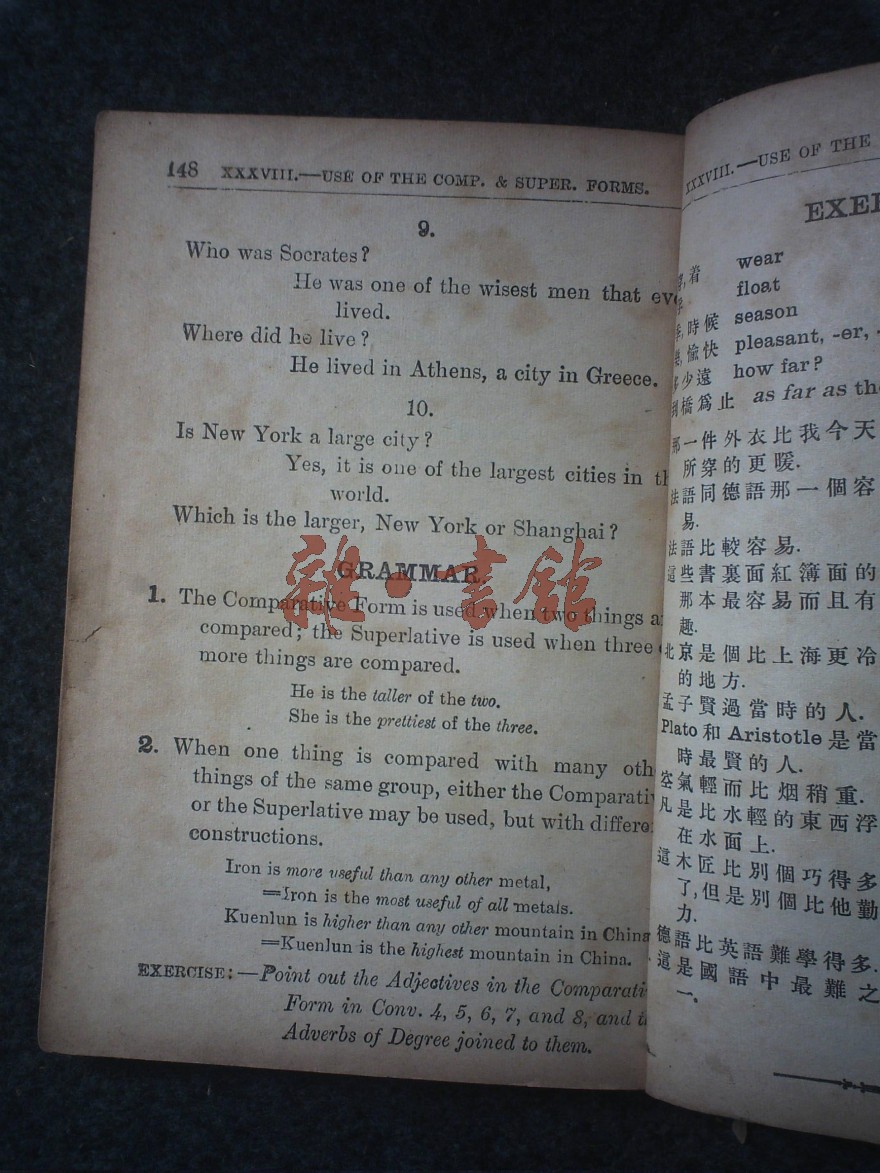 148 XXXVIII.—USE OF THE COMP. & SUPER. FORMS.
9.
Who was Socrates?
He was one of the wisest men that
lived.
Where did he live?
He lived in Athens, a city in Greece.
10.
Is New York a large city?
Yes, it is one of the largest cities in
world.
Which is the larger, New York or Shanghai?
GRAMMAR.
1. The Comparative Form is used when two things
compared; the Superlative is used when three
more things are compared.
He is the taller of the two.
She is the prettiest of the three.
2. When one thing is compared with many
things of the same group, either the
or the Superlative may be used, but with
constructions.
Iron is more useful than any other metal,
=Iron is the most useful of all metals.
Kuenlun is higher than any other mountain in China
=Kuenlun is the highest mountain in China.
EXERCISE:—Point out the Adjectives in the
Form in Conv. 4, 5, 6, 7, and 8, and
Adverbs of Degree joined to them.
XXXVIII.—USE OF THE
着 wear
float
時候 season
愉快 pleasant, -er,
多少遠 how far?
到橋爲止 as far as
那一件外衣比我今天
所穿的更暖.
法語同德語那一個容
易.
法語比較容易.
這些書裏面紅簿面的
那本最容易而且有
趣.
北京是個比上海更冷
的地方.
孟子賢過當時的人.
Plato 和 Aristotle 是當
時最賢的人.
空氣輕而比烟稍重.
凡是比水輕的東西浮
在水面上.
這木匠比別個巧得多
了,但是別個比他勤
力.
德語比英語難學得多.
這是國語中最難之
一.
雜·書館